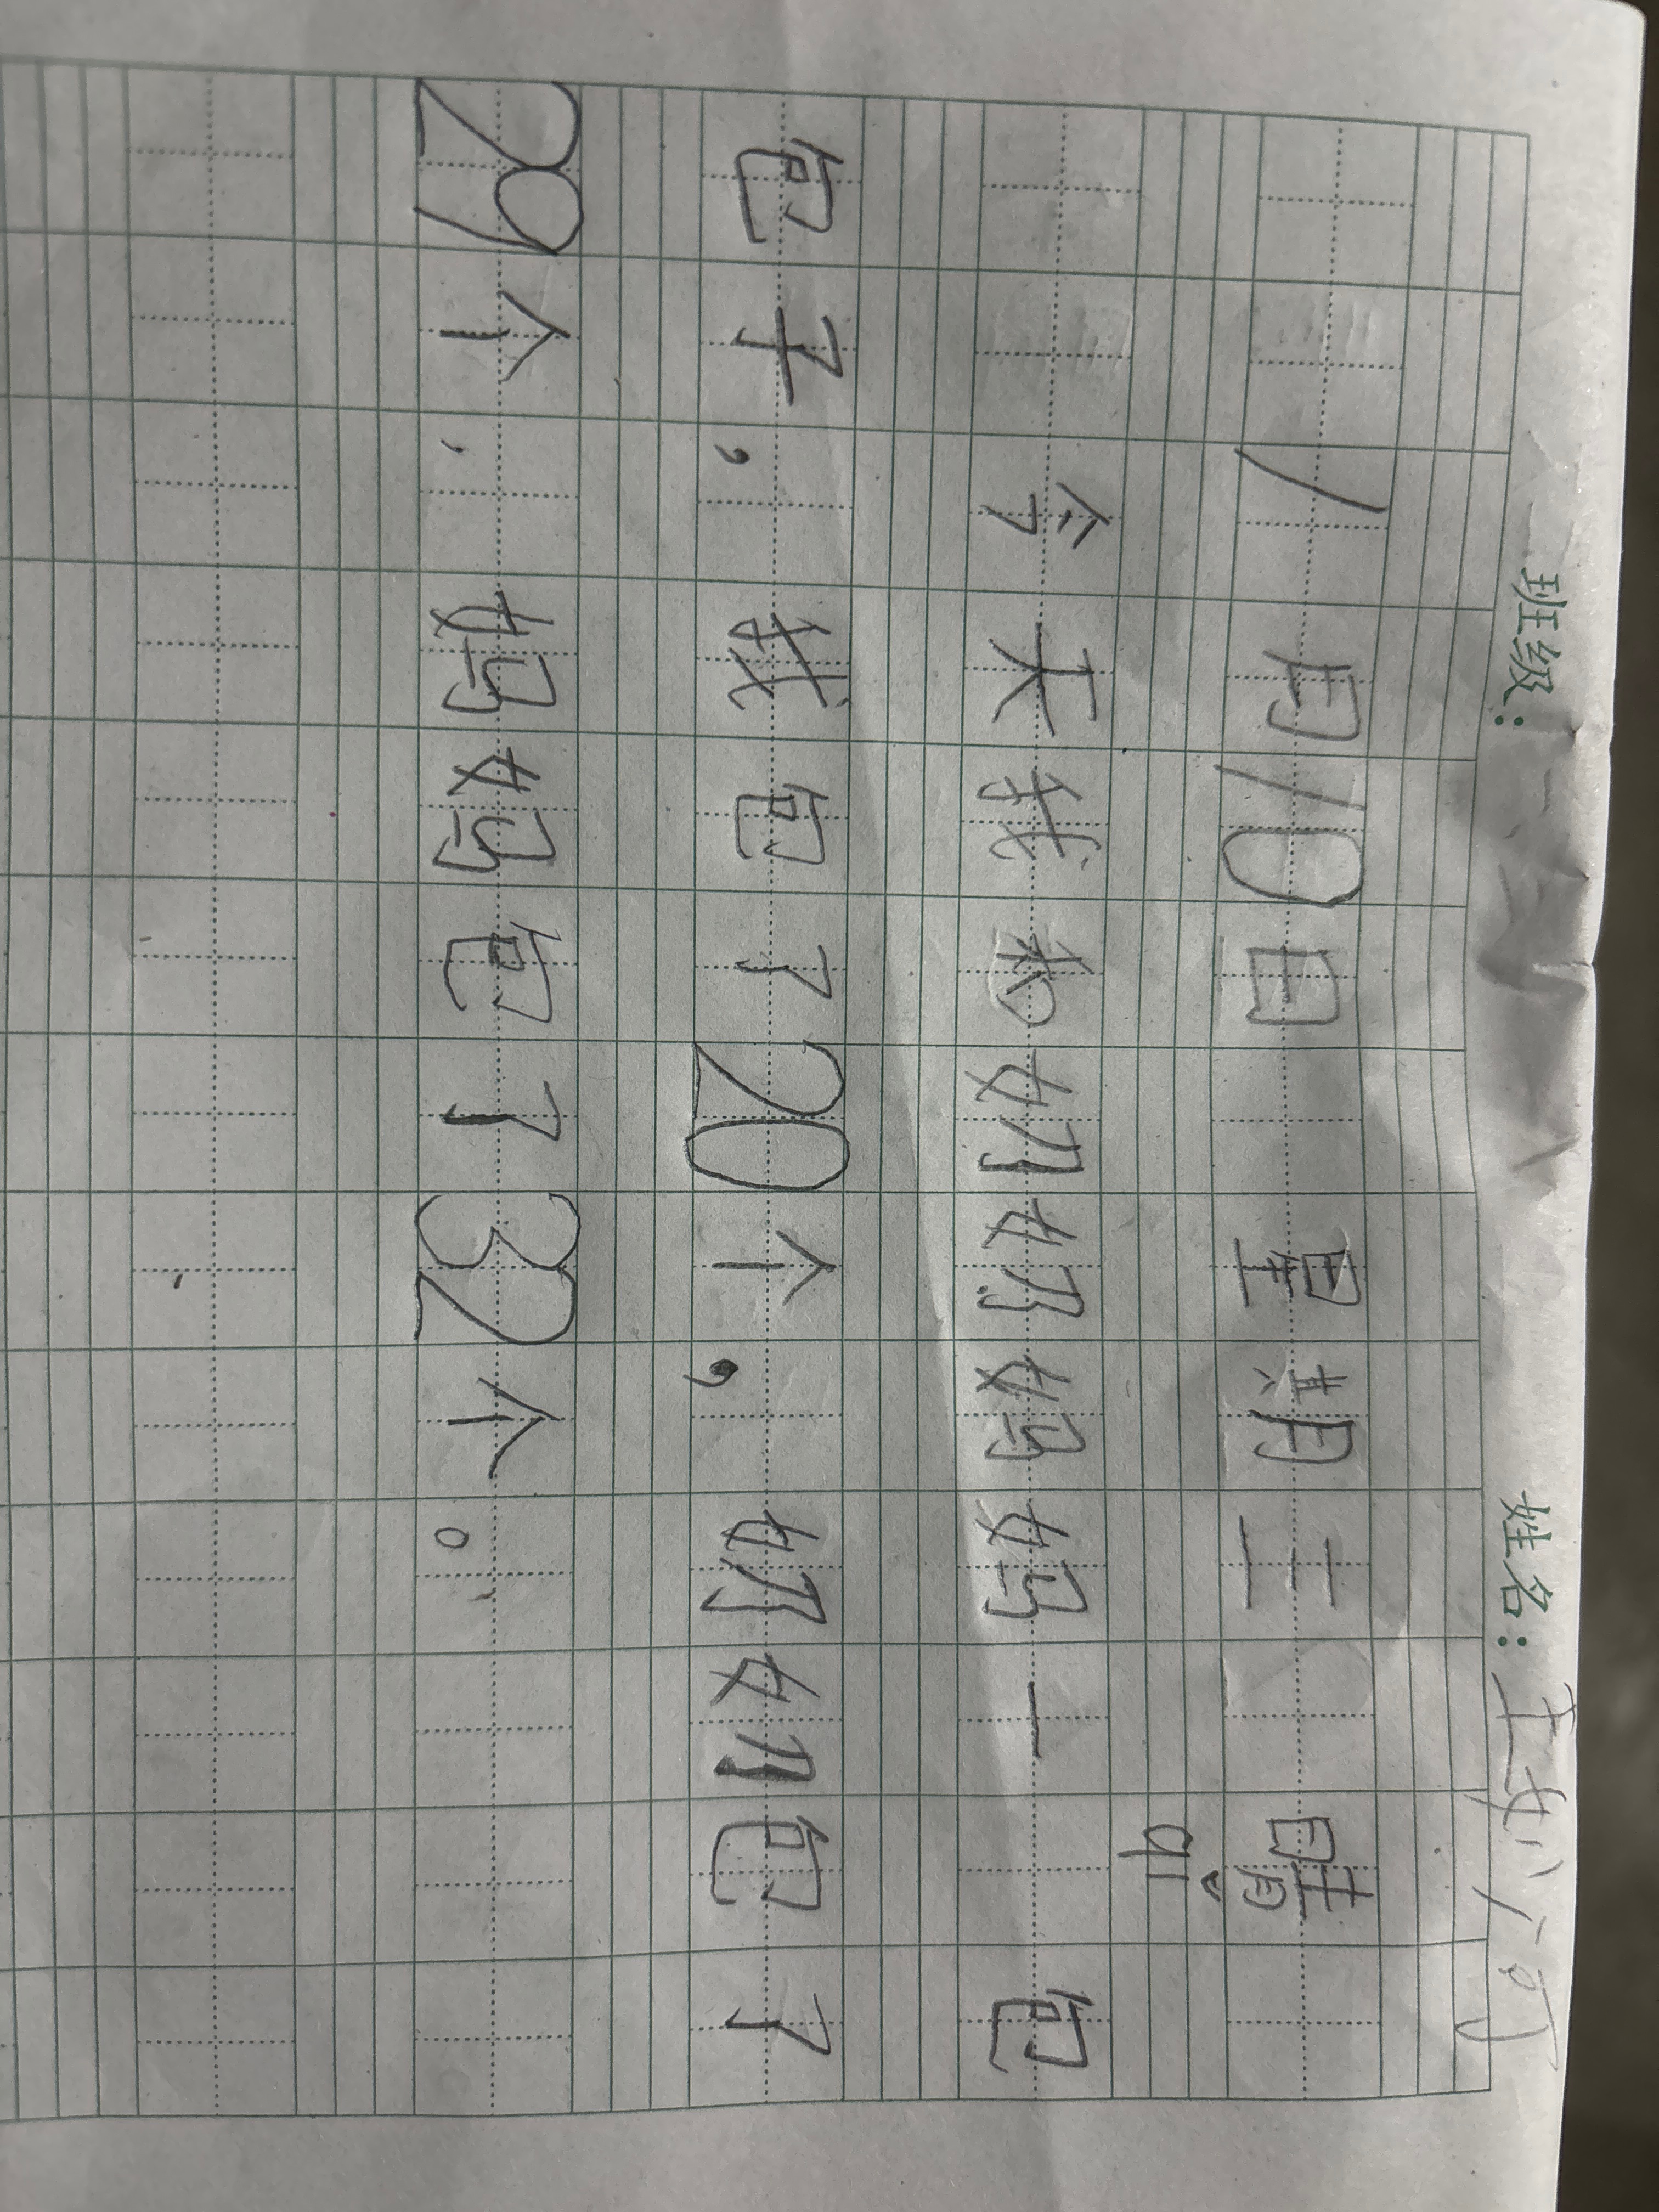 班级： 姓名：王
1月10日 星期三 晴
qǐ
今天我和奶奶妈妈一 包
包子，我包了20个，奶奶包了
29个，妈妈包了32个。